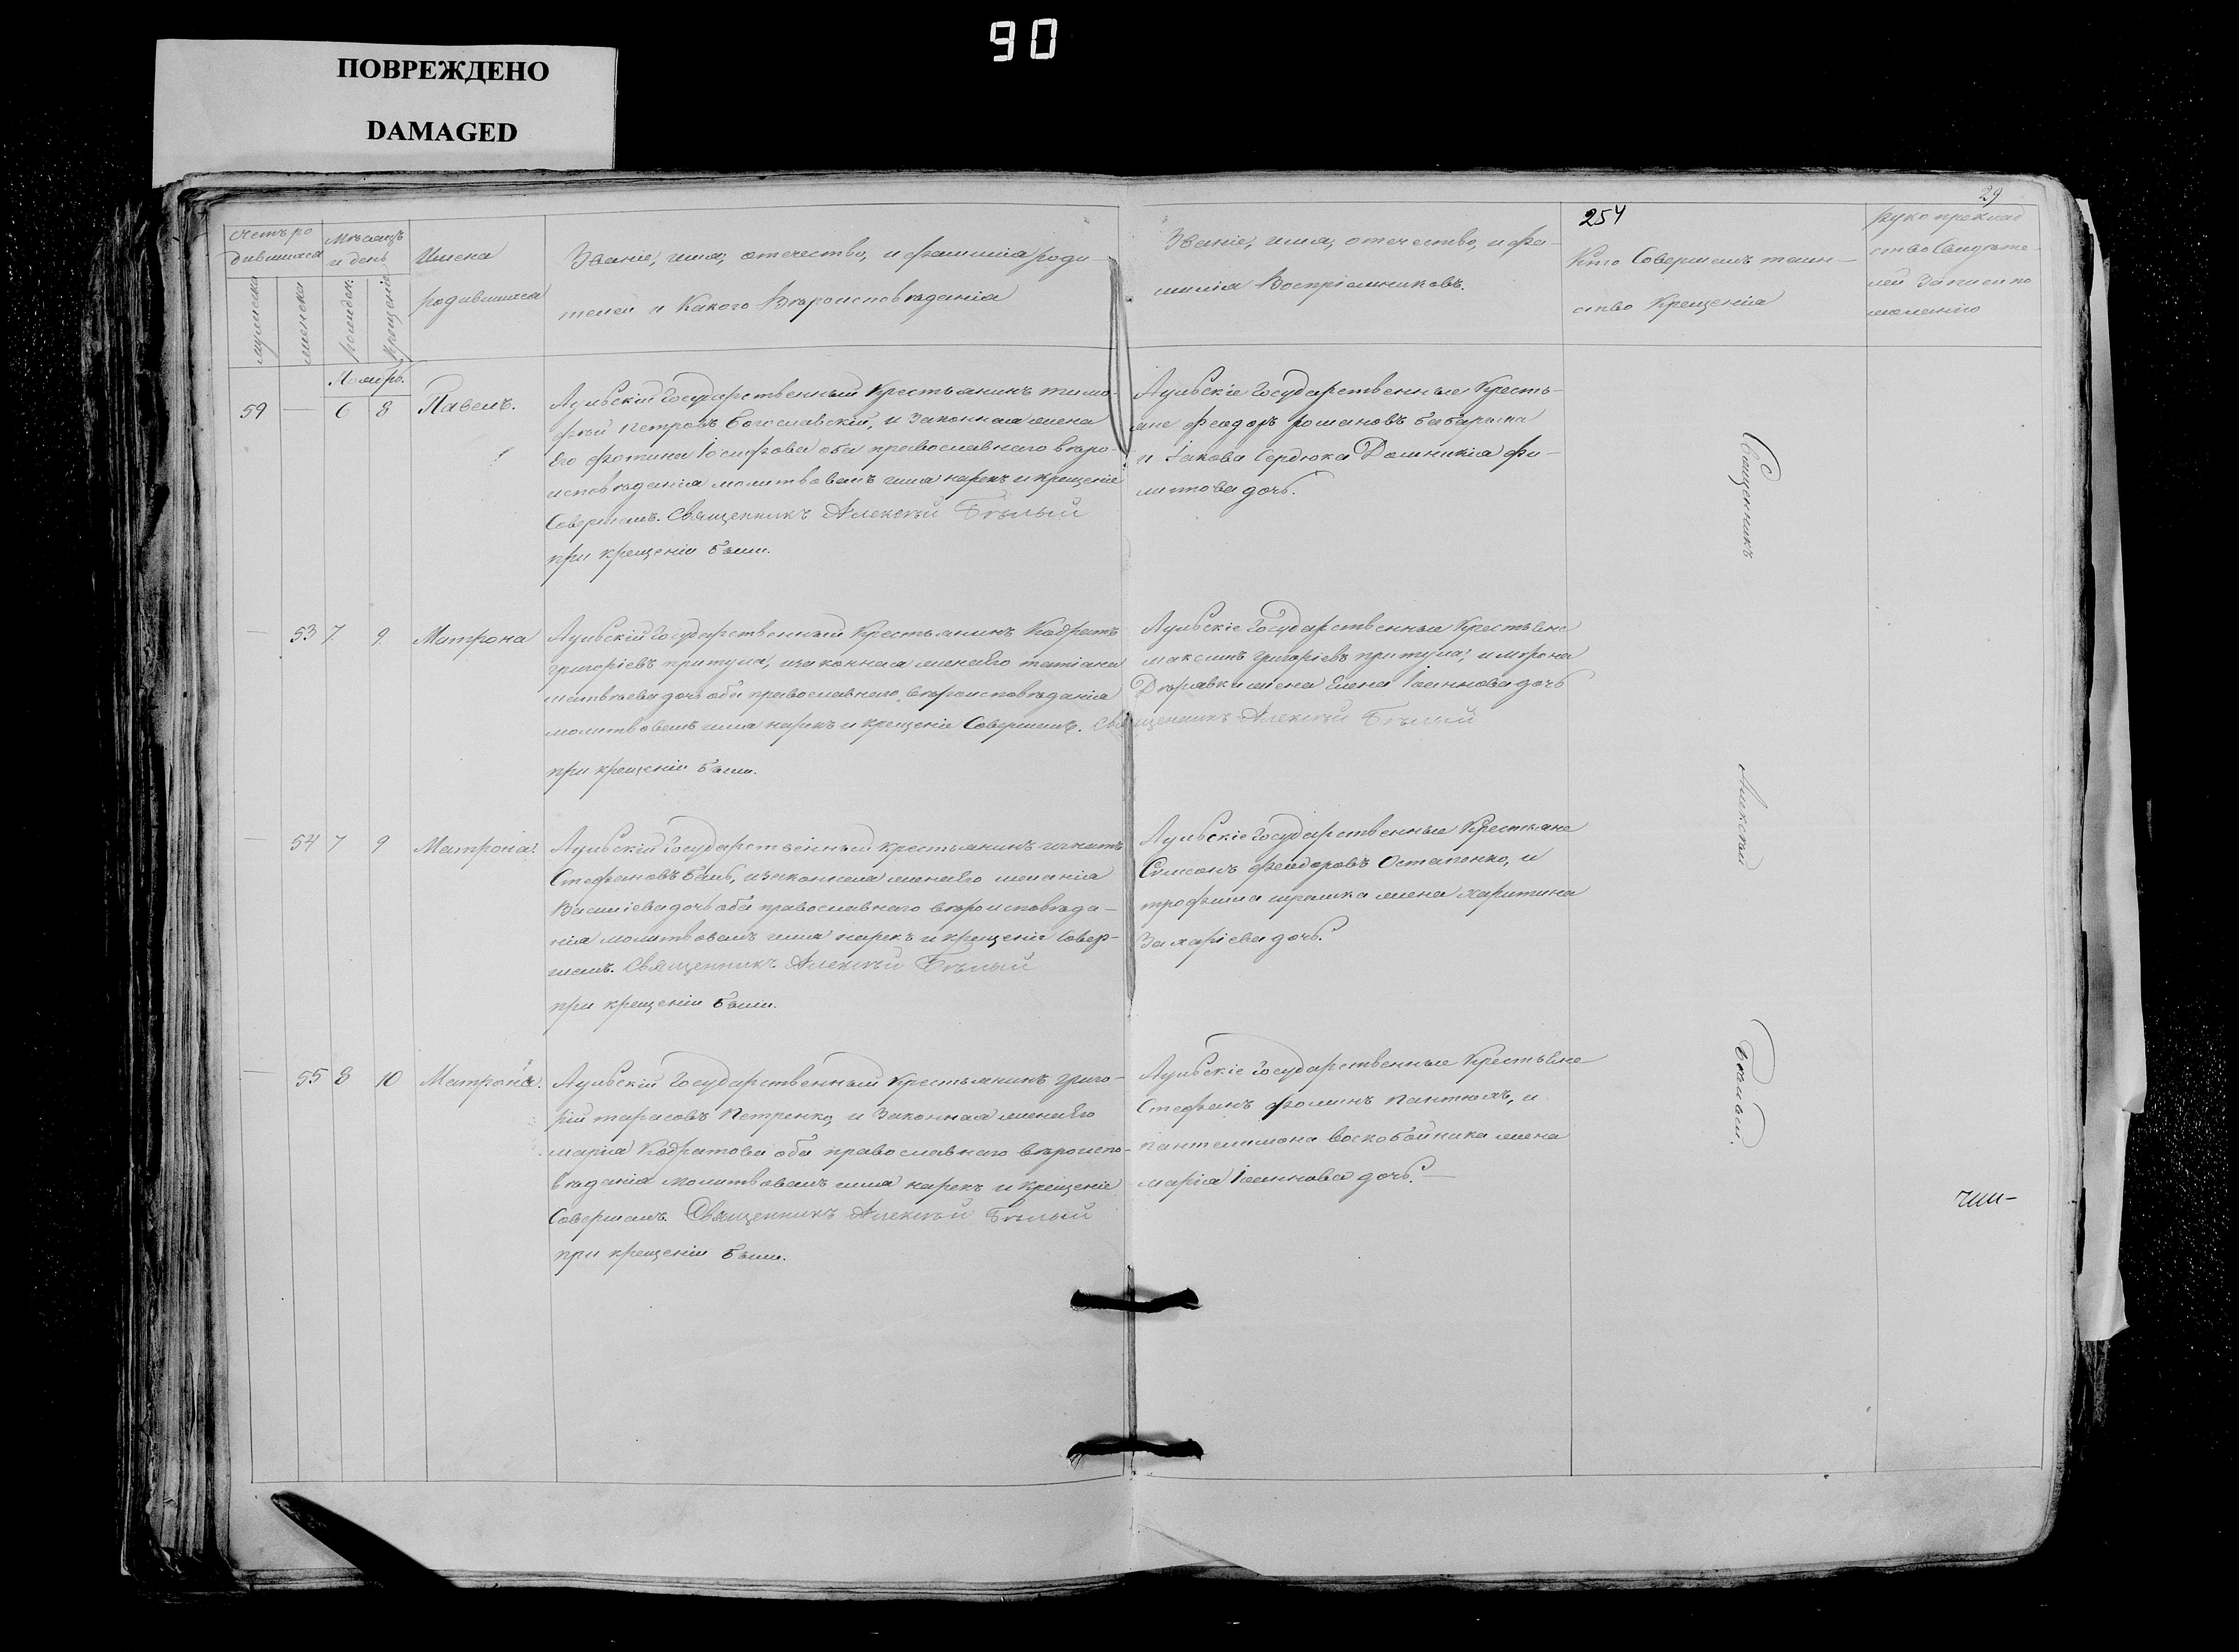 90
ПОВРЕЖДЕНО
DAMAGED
29
254
Счетъ родившихся
мужеска
женска
Мѣсяцъ и день
рожден.
крещенія
Имена
родившихся
Званіе, имя, отечество, и фамилія роди-
телей и Какого Вѣроисповѣданія
Званіе, имя, отечество, и фа-
милія Воспріемниковъ.
Кто Совершалъ таин-
ство Крещенія
руко приклад
ство Свидѣте
лей Записи по
желанію
Ноябрь.
59 — 6 8 Павелъ.
Аульскій Государственный Крестьянинъ тимо-
фѣй Петровъ Богославскій, и Законная жена
Его фотина Іосифова оба православнаго вѣро-
исповѣданія молитвовалъ имя нарекъ и крещеніе
Совершалъ. Священникъ Алексѣй Бѣлый
при крещеніи были.
Аульскіе Государственные Кресть-
яне феодоръ романовъ бабарыка
и Іакова Сердюка Домникія фи-
липпова дочь.
— 53 7 9 Матрона
Аульскій Государственный Крестьянинъ Кодратъ
григоріевъ притула, изаконная жена Его татіана
матвѣева дочь оба православнаго вѣроисповѣданія
молитвовалъ имя нарекъ и крещеніе Совершалъ. Священникъ Алексѣй Бѣлый
при крещеніи были.
Аульскіе Государственные Крестьяне
максимъ григоріевъ притула, и мѵрона
Державки жена Елена Іоаннова дочь
— 54 7 9 Матрона.
Аульскій Государственный крестьянинъ игнатъ
Стефановъ баль, изаконная жена Его меланія
Василіева дочь оба православнаго вѣроисповѣда-
нія молитвовалъ имя нарекъ и крещеніе Совер-
шалъ. Священникъ Алексѣй Бѣлый
при крещеніи были.
Аульскіе Государственные Крестьяне
Сѵмеонъ феодоровъ Остапенко, и
трофима жена харитина
Захаріева дочь.
— 55 8 10 Матрона.
Аульскій Государственный Крестьянинъ григо-
рій тарасовъ Петренко, и Законная жена Его
марія Кодратова оба православнаго вѣроиспо-
вѣданія молитвовалъ имя нарекъ и крещеніе
Совершалъ. Священникъ Алексѣй Бѣлый
при крещеніи были.
Аульскіе Государственные Крестьяне
Стефанъ фоминъ пантюхъ, и
пантелимона воскобойника жена
марія Іоаннова дочь.—
Священникъ
Алексѣй
Бѣлый.